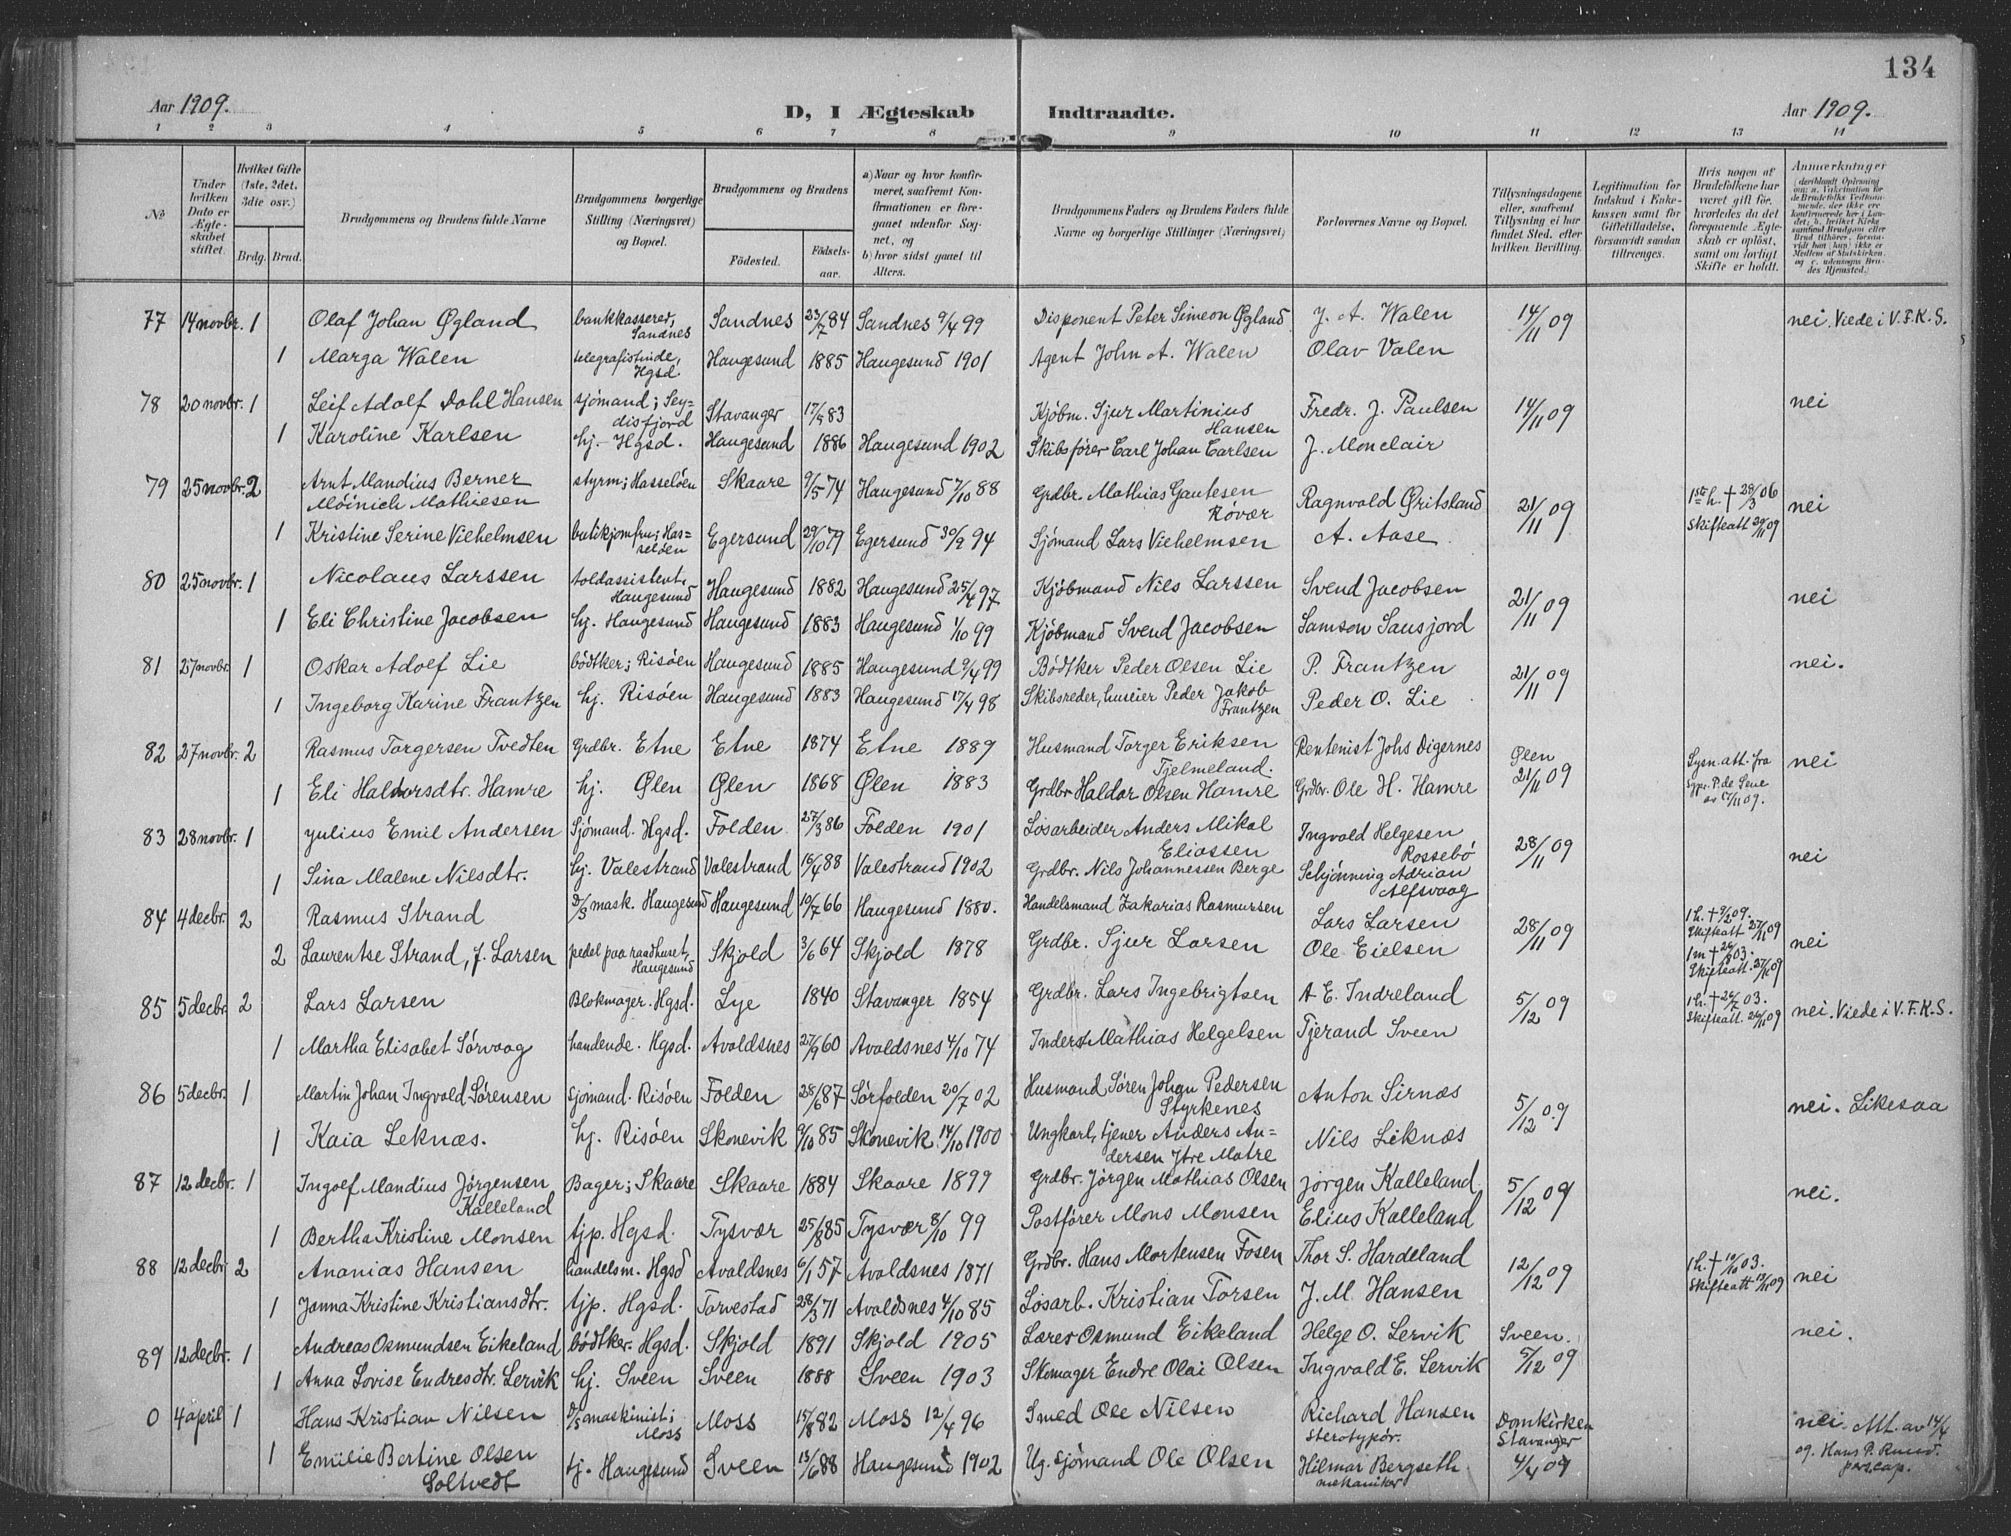 134
Aar 1909. D, I Ægteskab Indtraadte. Aar 1909.
1 2 3 4 5 6 7 8 9 10 11 12 13 14
No
Under hvilken Dato er Ægteskabet stiftet.
Hvilket Gifte (1ste, 2det, 3die osv.)
Brdg. Brud.
Brudgommens og Brudens fulde Navne
Brudgommens borgerlige Stilling (Næringsvei) og Bopæl.
Brudgommens og Brudens
Födested. Födselsaar.
a) Naar og hvor konfirmeret, saafremt Konfirmationen er foregaaet udenfor Sognet, og
b) hvor sidst gaaet til Alters.
Brudgommens Faders og Brudens Faders fulde Navne og borgerlige Stillinger (Næringsvei)
Forlovernes Navne og Bopæl.
Tillysningsdagene eller, saafremt Tillysning ei har fundet Sted, efter hvilken Bevilling.
Legitimation for Indskud i Enkekassen samt for Giftetilladelse, forsaavidt saadan tiltrænges.
Hvis nogen af Brudefolkene har været gift för, hvorledes da det foregaaende Ægteskab er oplöst, samt om lovligt Skifte er holdt.
Anmærkninger
77 14 novbr. 1 Olaf Johan Øgland bankkasserer, Sandnes Sandnes 23/7 84 Sandnes 9/4 99 Disponent Peter Simeon Øgland J. A. Walen 14/11 09 nei. Viede i V.F.K.S.
1 Marga Walen telegrafistinde, Hgsd. Haugesund 1885 Haugesund 1901 Agent John A. Walen Olav Valen
78 20 novbr. 1 Leif Adolf Dahl Hansen sjømand; Seydisfjord Stavanger 83 Kjøbm. Sjur Martinius Hansen Fredr. J. Paulsen 14/11 09 nei
1 Karoline Karlsen hj. Hgsd. Haugesund 1886 Haugesund 1902 Skibsfører Carl Johan Carlsen J. Monclair
79 25 novbr. 2 Arnt Mandius Berner Möinich Mathiesen styrm; Hasseløen Skaare 9/5 74 Haugesund 7/10 88 Grdbr. Mathias Gautesen Røvær Ragnvald Øritsland 21/11 09 1ste h. † 28/3 06 skifteatt 20/11 09 nei
1 Kristine Serine Vilhelmsen butikjomfru; Hasseløen Egersund 29/10 79 Egersund 30/9 94 Sjømand Lars Vilhelmsen A. Aase
80 25 novbr. 1 Nicolaus Larssen toldassistent, Haugesund Haugesund 1882 Haugesund 25/4 97 Kjøbmand Nils Larssen Svend Jacobsen 21/11 09 nei
1 Eli Christine Jacobsen hj. Haugesund Haugesund 1883 Haugesund 1/10 99 Kjøbmand Svend Jacobsen Samson Sausjord
81 27 novbr. 1 Oskar Adolf Lie bødtker; Risøen Haugesund 1885 Haugesund 9/4 99 Bødtker Peder Olsen Lie P. Frantzen 21/11 09 nei.
1 Ingeborg Karine Frantzen hj. Risøen Haugesund 1883 Haugesund 17/4 98 Skibsreder, huseier Peder Jakob Frantzen Peder O. Lie
82 27 novbr. 2 Rasmus Torgersen Tvedten Grdbr. Etne Etne 1874 Etne 1889 Husmand Torger Eriksen Tjelmeland. Rentenist Johs Digernes Ølen 21/11 09 Sysn. att. fra P. de Seue av 17/11 09. nei
1 Eli Haldorsdtr. Hamre hj. Ølen Ølen 1868 Ølen 1883 Grdbr Haldor Olsen Hamre Grdbr. Ole H. Hamre
83 28 novbr. 1 Julius Emil Andersen Sjømand. Hgsd. Folden 27/3 86 Folden 1901 Løsarbeider Anders Mikal Eliassen Ingvald Helgesen Rossebø 28/11 09 nei
1 Sina Malene Nilsdtr. hj. Valestrand Valestrand 16/4 88 Valestrand 1902 Grdbr. Nils Johannessen Berge Schjønning Adrian Alfsvaag
84 4 decbr. 2 Rasmus Strand D/S mask. Haugesund Haugesund 10/7 66 Haugesund 1880. Handelsmand Zakarias Rasmussen Lars Larsen 28/11 09 1 h. † 9/2 09. Skifteatt 27/11 09 nei
2 Laurentse Strand, f. Larsen pedel paa raadhuset, Haugesund Skjold 3/6 64 Skjold 1878 Grdbr. Sjur Larsen Ole Eielsen 1 m † 03. Skifteatt. 27/11 09
85 5 decbr. 2 Lars Larsen Blokmager. Hgsd. Lye 1840 Stavanger 1854 Grdbr. Lars Ingebrigtsen A E. Indreland 5/12 09 1 h. † 03. Skifteatt. 26/11 09 nei. Viede i V.F.K.S.
1 Martha Elisabet Sørvaag handlende. Hgsd. Avaldsnes 27/9 60 Avaldsnes 4/10 74 Inderst Mathias Helgelsen Tjerand Sveen
86 5 decbr. 1 Martin Johan Ingvald Sørensen sjømand. Risøen Folden 28/6 87 Sørfolden 20/7 02 Husmand Søren Johan Pedersen Styrkenes Anton Sirnæs 5/12 09 nei. Likesaa
1 Kaia Leknæs. hj. Risøen Skonevik 9/10 85 Skonevik 14/10 1900 Ungkarl, tjener Anders Andersen Ytre Matre Nils Liknæs
87 12 decbr. 1 Ingolf Mandius Jørgensen Kalleland Bager; Skaare Skaare 1884 Skaare 1899 Grdbr. Jørgen Mathias Olsen Jørgen Kalleland 5/12 09 nei.
1 Bertha Kristine Monsen tjp. Hgsd. Tysvær 25/8 85 Tysvær 8/10 99 Postfører Mons Monsen Elius Kalleland
88 12 decbr 2 Ananias Hansen handelsm. Hgsd Avaldsnes 6/1 57 Avaldsnes 1871 Grdbr. Hans Mortensen Fosen Thor S. Hardeland 12/12 09 1 h. † 10/10 03. Skifteatt 09 nei
1 Janna Kristine Kristiansdtr. tjp. Hgsd. Torvestad 28/3 71 Avaldsnes 4/10 85 Løsarb. Kristian Torsen J. M. Hansen
89 12 decbr. 1 Andreas Osmundsen Eikeland bødtker. Hgsd. Skjold 1891 Skjold 1905 Lærer Osmund Eikeland Helge O. Lervik Sveen. 5/12 09 nei.
1 Anna Lovise Endresdtr. Lervik hj. Sveen Sveen 1888 Sveen 1903 Skomager Endre Olai Olsen Ingvald E. Lervik
0 4 april 1 Hans Kristian Nilsen D/S maskinist; Moss Moss 15/8 82 Moss 12/4 96 Smed Ole Nilsen Richard Hansen sterotypør. Domkirken Stavanger 4/4 09 nei. Att. av 14/4 og. Hans P. Ruud. pers.cap.
1 Emilie Bertine Olsen Soltvedt tj. Haugesund Sveen 13/6 88 Haugesund 1902 Ug. sjømand Ole Olsen Hilmar Bergseth mekaniker